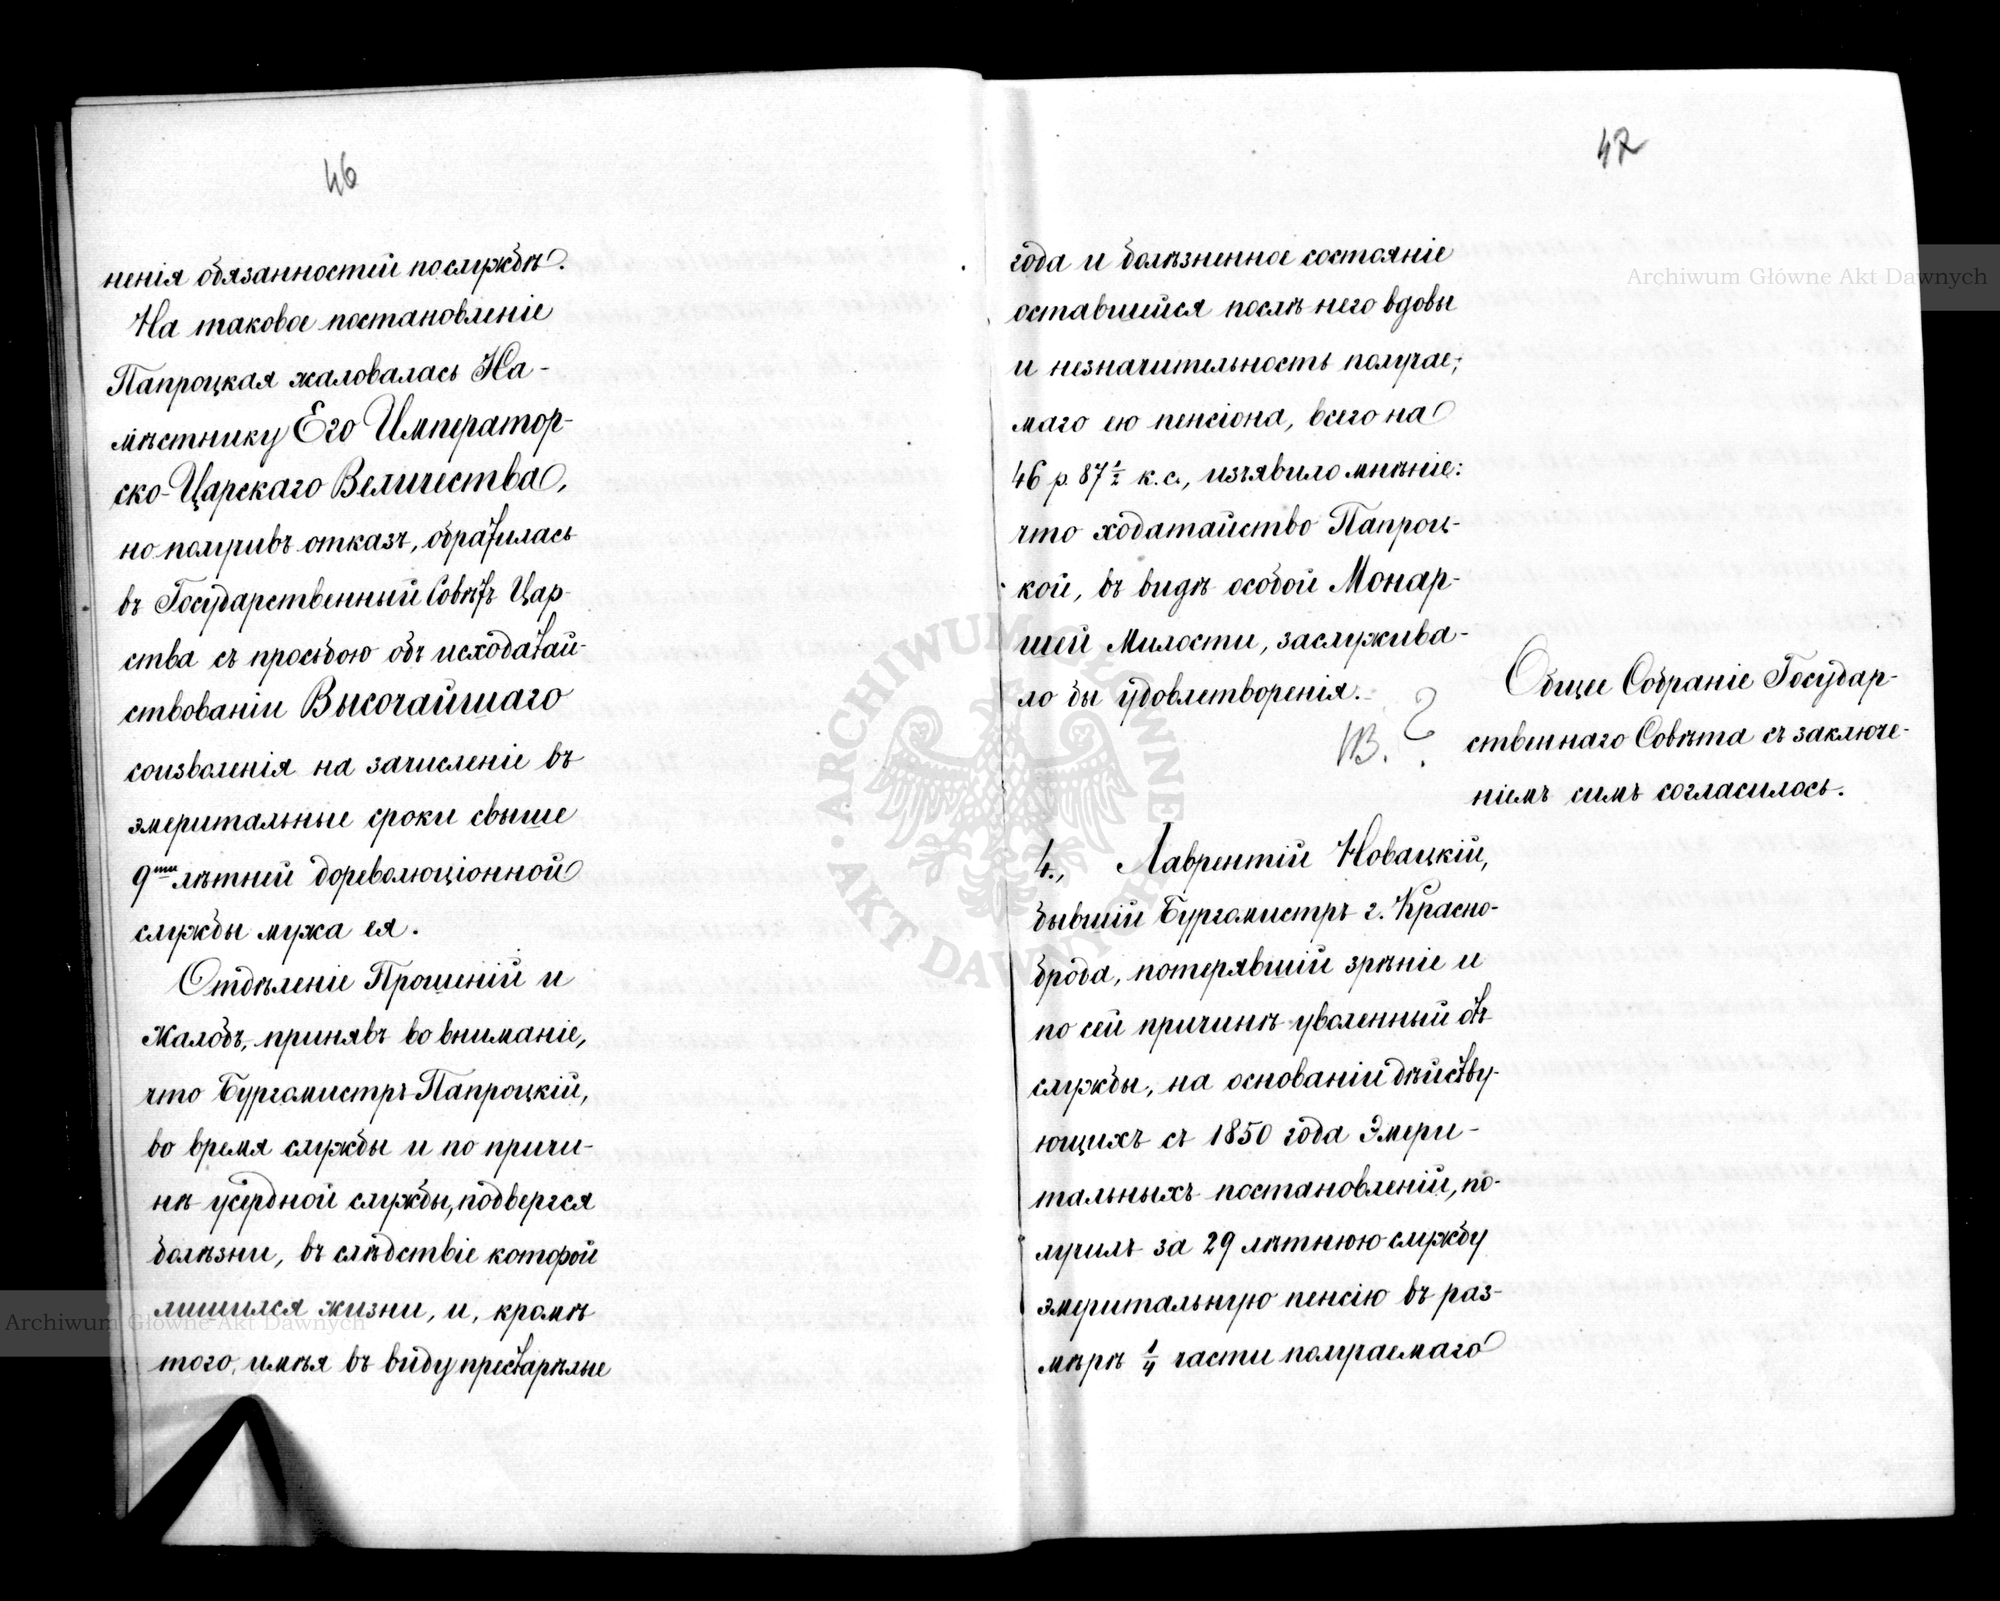 46
ненія обязанностей по службѣ.
На таковое постановленіе
Папроцкая жаловалась На-
мѣстнику Его Император-
ско-Царскаго Величества,
но получивъ отказъ, обратилась
въ Государственный Совѣтъ Цар-
ства съ просьбою объ исходатай-
ствованіи Высочайшаго
соизволенія на зачисленіе въ
эмеритальные сроки свыше
9ти лѣтней дореволюціонной
службы мужа ея.
Отдѣленіе Прошеній и
Жалобъ, принявъ во вниманіе,
что Бургомистръ Папроцкій,
во время службы и по причи-
нѣ усердной службы, подвергся
болѣзни, въ слѣдствіе которой
лишился жизни, и, кромѣ
того, имѣя въ виду престарѣлые
47
года и болѣзненное состояніе
оставшейся послѣ него вдовы
и незначительность получае-
маго ею пенсіона, всего на
46 р. 87 1/2 к. с., изъявило мнѣніе:
что ходатайство Папроц-
кой, въ видѣ особой Монар-
шей Милости, заслужива-
ло бы удовлетворенія.
NB. ?
Общее Собраніе Государ-
ственнаго Совѣта съ заключе-
ніемъ симъ согласилось.
4., Лаврентій Новацкій,
бывшій Бургомистръ г. Красно-
брода, потерявшій зрѣніе и
по сей причинѣ уволенный отъ
службы, на основаніи дѣйству-
ющихъ съ 1850 года Эмери-
тальныхъ постановленій, по-
лучилъ за 29 лѣтнюю службу
эмеритальную пенсію въ раз-
мѣрѣ 1/4 части получаемаго
Archiwum Główne Akt Dawnych
Archiwum Główne Akt Dawnych
ARCHIWUM GŁÓWNE AKT DAWNYCH